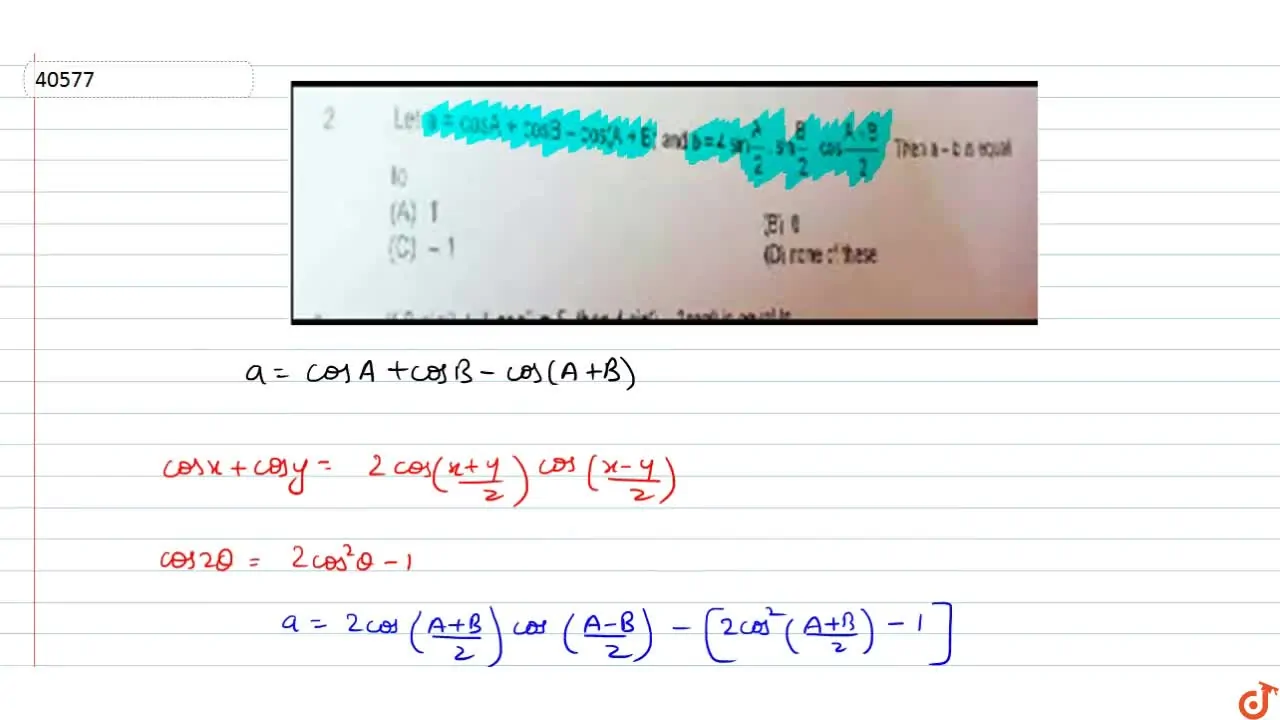 40577
2 Let a = cosA + cosB - cos(A + B) and b = 4 sin A/2 . sin B/2 cos A+B/2 . Then a - b is equal
to
(A) 1 (B) 0
(C) - 1 (D) none of these
a = cosA + cosB - cos(A+B)
cosx + cosy = 2cos(x+y/2) cos(x-y/2)
cos2θ = 2cos²θ - 1
a = 2cos(A+B/2) cos(A-B/2) - [2cos²(A+B/2) - 1]